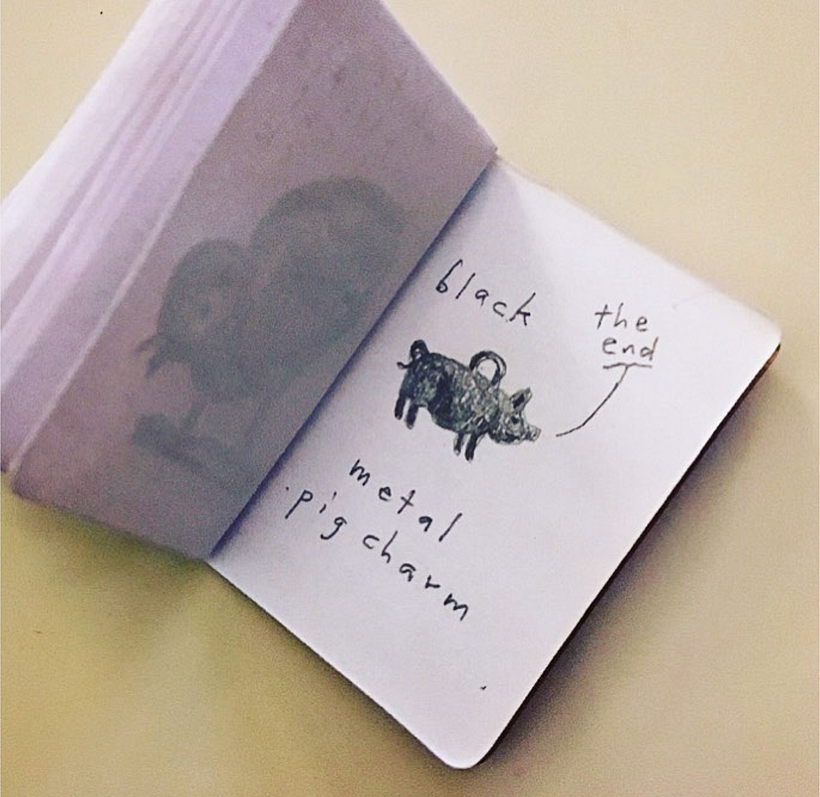 black
the
end
metal
pig charm